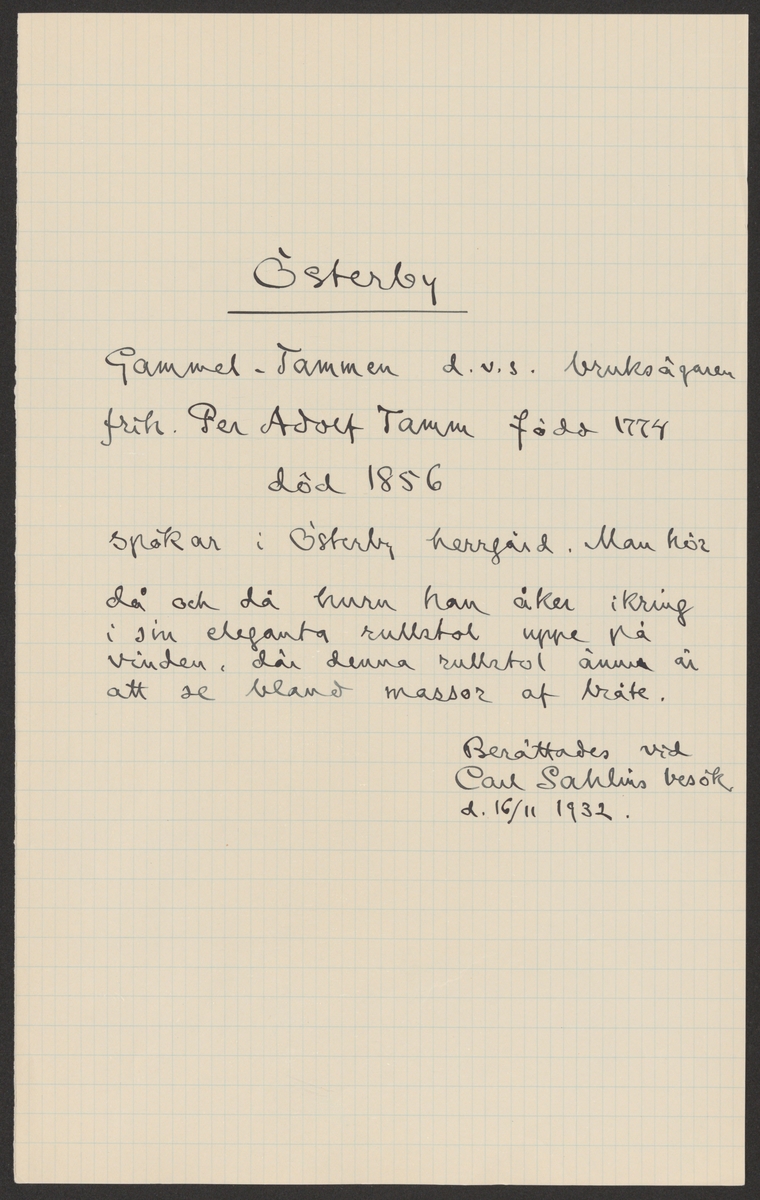 Österby
Gammel-Tammen d.v.s. bruksägaren
frih. Per Adolf Tamm född 1774
död 1856
spökar i Österby herrgård. Man hör
då och då huru han åker ikring
i sin eleganta rullstol uppe på
vinden, där denna rullstol ännu är
att se bland massor af bråte.
Berättades vid
Carl Sahlins besök
d. 16/11 1932.